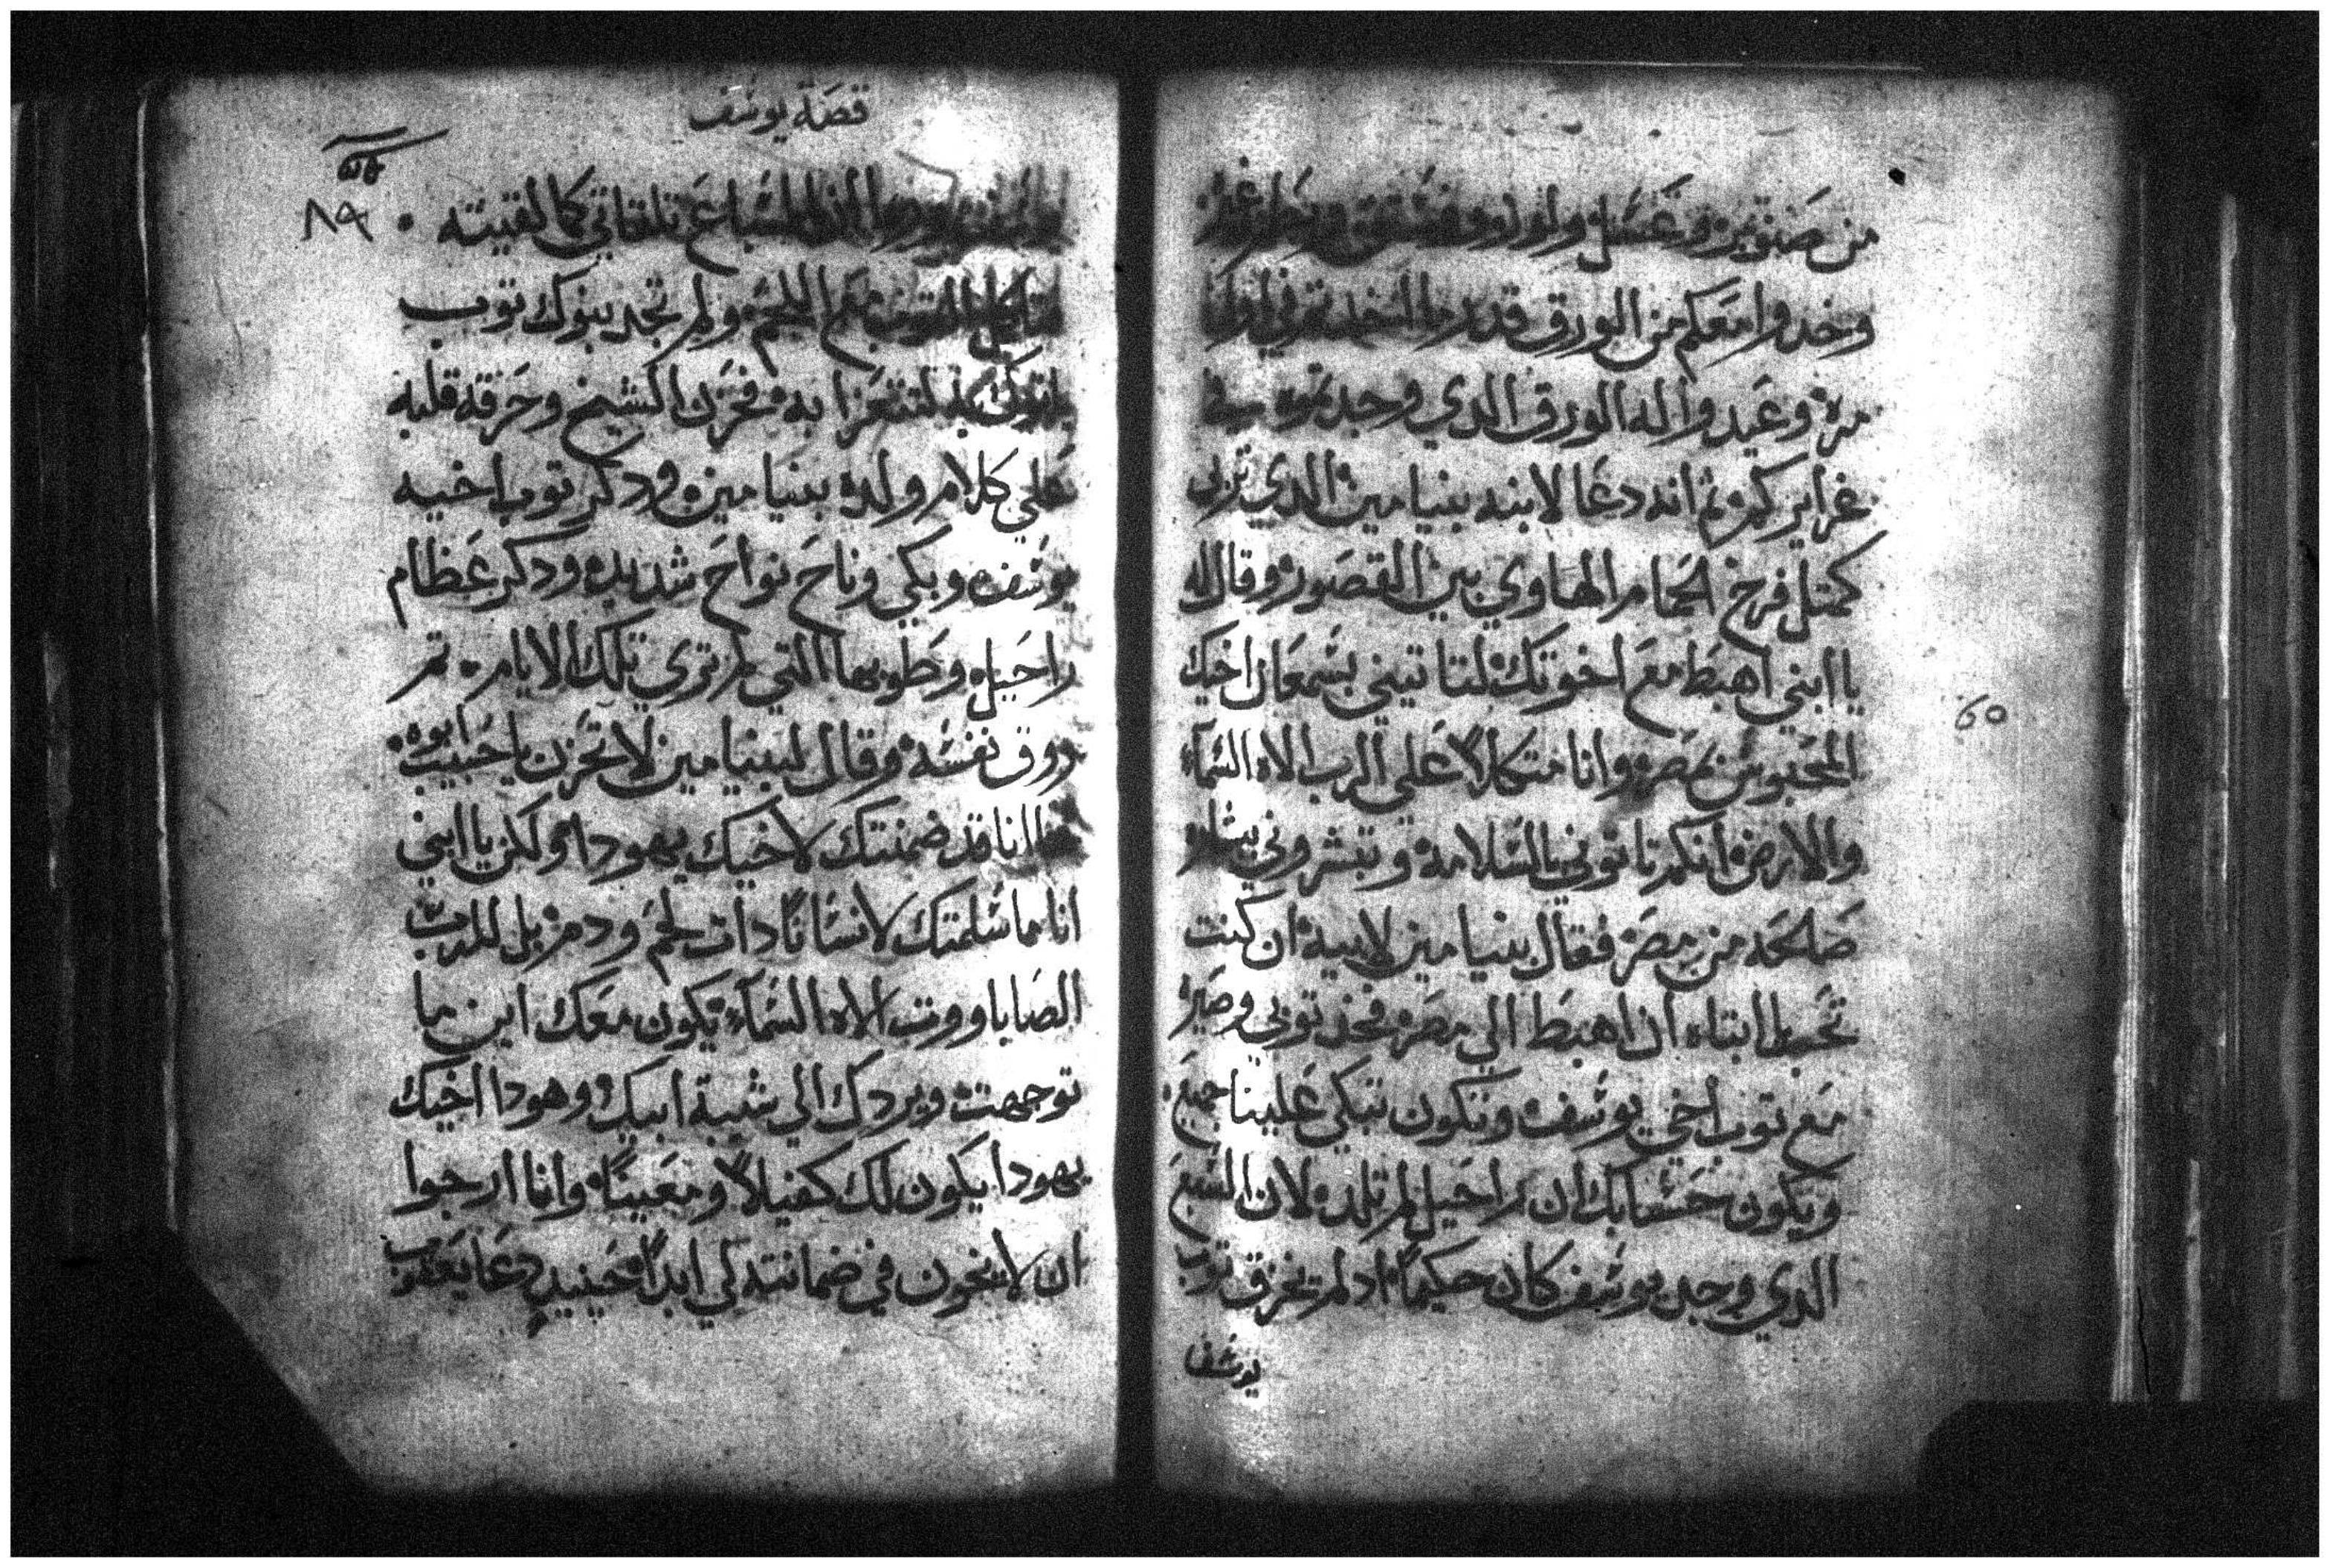 من صنوبر وعسل ولوز وفستق
وخدوا معكم من الورق قدر ما اخدتم في اول
مره وعيدوا له الورق الدي وجدتموه في
غرايركم ثم انه دعا لابنه بنيامين الدي تربى
كمتل فرخ الحمام الهاوي بين القصور وقال له
يا ابني اهبط مع اخوتك لتاتيني بشمعان اخيك
المحبوس بمصر وانا متكلاً علي الرب الاه السماء
والارض انكم تاتوني بالسلامه وتبشروني
صالحه من مصر فقال بنيامين لابيه ان كنت
تحب يا ابتاه ان اهبط الي مصر فخد توبي وصيره
مع توب اخي يوسف وتكون تبكي علينا جميع
ويكون حسابك ان راحيل لم تلده لان السبع
الدي وجد يوسف كان حكيماً اد لم يخرق توب
يوسف
قصة يوسف
٨٩
السباع تلقاني كما لقيته
مع اللحم ولم تجد بنوك توب
لتتعزا به فحزن الشيخ وحرقة قلبه
علي كلام ولده بنيامين ودكر توب اخيه
يوسف وبكي وناح نواح شديده ودكر عظام
راحيل وطوبها التي لم تري تلك الايام ثم
روق نفسه وقال لبنيامين لا تحزن يا حبيب ابوه
انا قد ضمنتك لاخيك يهودا ولكن يا ابني
انا ما سلمتك لانساناً دات لحم ودم بل للرب
الصاباووت الاه السماء يكون معك اين ما
توجهت ويردك الي شيبة ابيك وهودا اخيك
يهودا يكون لك كفيلاً ومعيناً وانا ارجوا
ان لا يخون في ضمانته لي ابداً حينيد دعا يعقوب
60